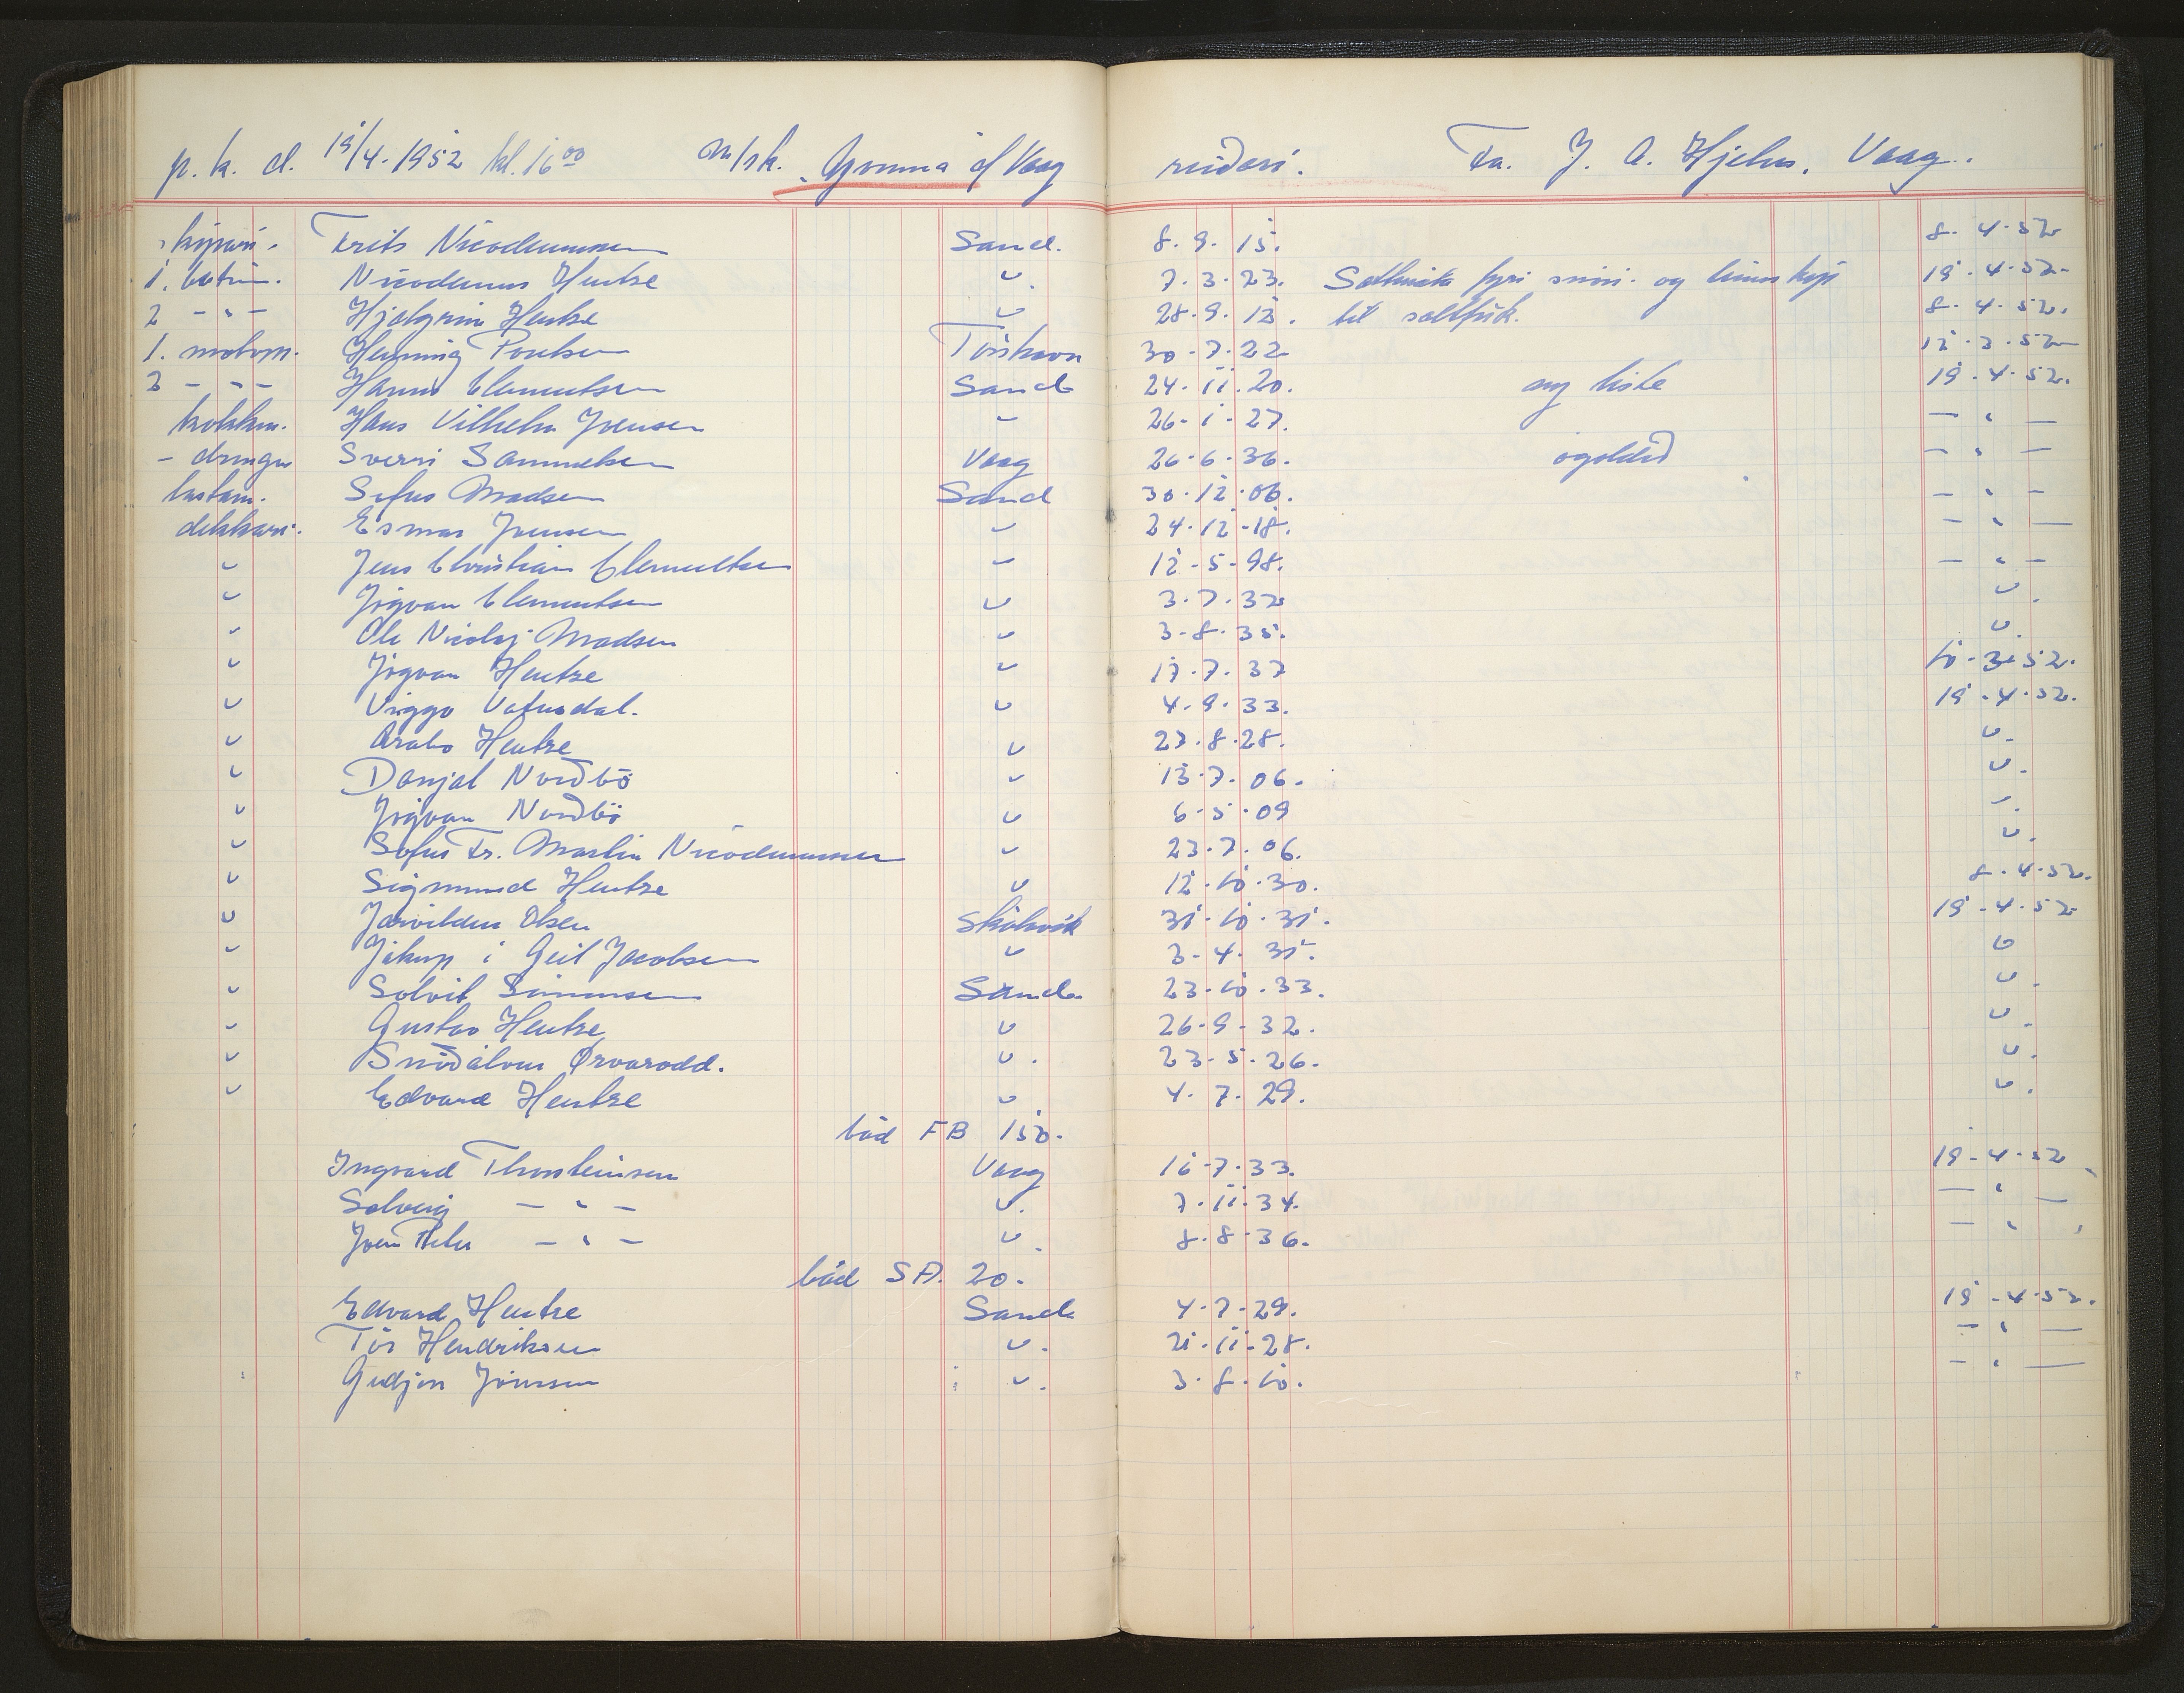 p. k. d. 19/4-1952 kl. 16 00 m/sk. "Gomma" á Vaag reiðari. Fa. J. A. Hjelm, Vaag.
skipari. Frits Nicodemusen Sand. 8. 9. 15. 8. 4. 52
1. bestim. Nicodemus Hentze " 7. 3. 23. fyri og 19. 4. 52
2 - " - Hjalgrim Hentze " 28. 9. 12. til saltfisk. 8. 4. 52.
1. motorm. Henning Poulsen Tórshavn 30-7-22 12. 3. 52
2 - " - Hanus Clementsen Sand 24. 11. 20. ny liste 19. 4. 52.
kokkur. Hans Vilhelm Joensen " 26-1-27. - " -
- drongur Sverri Samuelsen Vaag 26-6-36. ógoldið - " -
lastam. Sofus Madsen Sand 30. 12. 06. - " -
dekkari. Esmar Joensen " 24. 12-18. - " -
" Jens Christian Clementsen " 12-5-98. - " -
" Jógvan Clementsen " 3. 7. 32 "
" Ole Nicolaj Madsen " 3-8. 35. "
" Jógvan Hentze " 17. 7. 37 10-3-52.
" Viggo Vatnsdal. " 4. 9. 33. 19-4-52.
" Hentze " 23. 8. 28. "
" Danjal Norðbö " 13-7. 06. "
" Jógvan Norðbö " 6-5. 09 "
" Sofus Fr. Martin Nicodemusen " 23. 7. 06. "
" Sigmund Hentze " 12. 10. 30. 8. 4. 52.
" Olsen Skálavík 31. 10. 31. 19-4-52
" Jákup í Geil Jacobsen " 3-4. 31. "
" Solvit Simonsen Sand 23. 10. 33. "
" Gustav Hentze " 26-9-32. "
" Snidálvur Ørvarodd. " 23-5. 26. "
" Edvard Hentze " 4. 7. 29. "
bád FB 150.
Ingvard Thorsteinsen Vaag 16-7-33. 19-4-52
Solveig - " - " 7. 11. 34. - " -
Joen Peter - " - " 8. 8-36. - "
bád SA. 20.
Edvard Hentze Sand 4-7-29. 19-4-52.
Tór Hendriksen " 21. 11-28. - " -
Gudjon Jönssen " 3. 8. 10. - " -